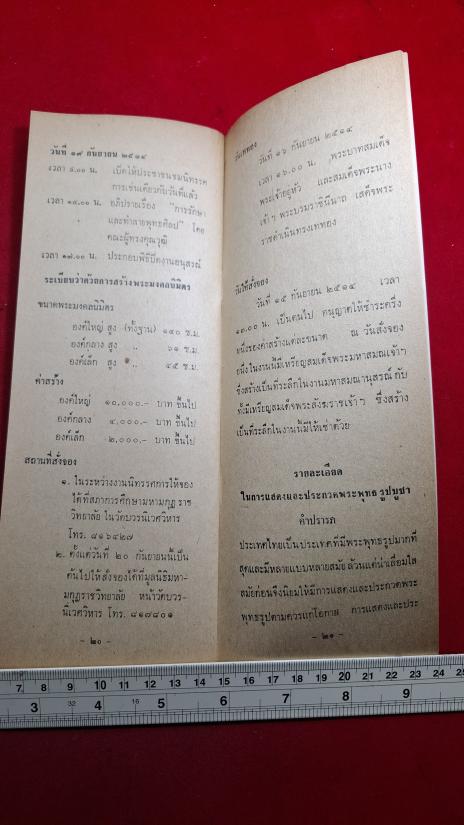 วันที่ ๑๙ กันยายน ๒๕๑๔
เวลา ๙.๐๐ น. เปิดให้ประชาชนชมนิทรรศ
การเช่นเดียวกับวันที่แล้ว
เวลา ๑๔.๐๐ น. อภิปรายเรื่อง "การรักษา
และทำลายพุทธศิลป" โดย
คณะผู้ทรงคุณวุฒิ
เวลา ๑๗.๐๐ น. ประกอบพิธีปิดงานอนุสรณ์
ระเบียบว่าด้วยการสร้างพระมงคลนิมิตร
ขนาดพระมงคลนิมิตร
องค์ใหญ่ สูง (ทั้งฐาน) ๑๔๐ ซ.ม.
องค์กลาง สูง ,, ๖๑ ซ.ม.
องค์เล็ก สูง ,, ๔๕ ซ.ม.
ค่าสร้าง
องค์ใหญ่ ๑๐,๐๐๐.- บาท ขึ้นไป
องค์กลาง ๔,๐๐๐.- บาท ขึ้นไป
องค์เล็ก ๒,๐๐๐.- บาท ขึ้นไป
สถานที่สั่งจอง
๑. ในระหว่างงานนิทรรศการให้จอง
ได้ที่สภาการศึกษามหามกุฏราช
วิทยาลัย ในวัดบวรนิเวศวิหาร
โทร. ๘๑๖๔๒๗
๒. ตั้งแต่วันที่ ๒๐ กันยายนนี้เป็น
ต้นไปให้สั่งจองได้ที่มูลนิธิมหา-
มกุฏราชวิทยาลัย หน้าวัดบวร-
นิเวศวิหาร โทร. ๘๑๗๘๐๑
- ๒๐ -
วันเททอง
วันที่ ๑๖ กันยายน ๒๕๑๔
เวลา ๑๖.๐๐ น. พระบาทสมเด็จ
พระเจ้าอยู่หัว และสมเด็จพระนาง
เจ้าฯ พระบรมราชินีนาถ เสด็จพระ
ราชดำเนินทรงเททอง
วันใช้สั่งจอง
วันที่ ๑๕ กันยายน ๒๕๑๔ เวลา
๑๓.๐๐ น. เป็นต้นไป อนุญาตให้ชำระครึ่ง
หนึ่งของค่าสร้างแต่ละขนาด ณ วันสั่งจอง
อนึ่ง ในงานนี้มีเหรียญสมเด็จพระมหาสมณเจ้าฯ
ซึ่งสร้างเป็นที่ระลึกในงานมหาสมณานุสรณ์ กับ
ทั้งมีเหรียญสมเด็จพระสังฆราชเจ้าฯ ซึ่งสร้าง
เป็นที่ระลึกในงานนี้มีให้เช่าด้วย
รายละเอียด
ในการแสดงและประกวดพระพุทธรูปบูชา
คำปรารภ
ประเทศไทยเป็นประเทศที่มีพระพุทธรูปมากที่
สุดและมีหลายแบบหลายสมัยล้วนแต่น่าเลื่อมใส
สมัยก่อนจึงนิยมให้มีการแสดงและประกวดพระ
พุทธรูปตามควรแก่โอกาส การแสดงและประ
- ๒๑ -
7 8 9 10 11 12 13 14 15 16 17 18 19 20 21 22 23 24 25
3 32 4 16 5 6 7 8 9